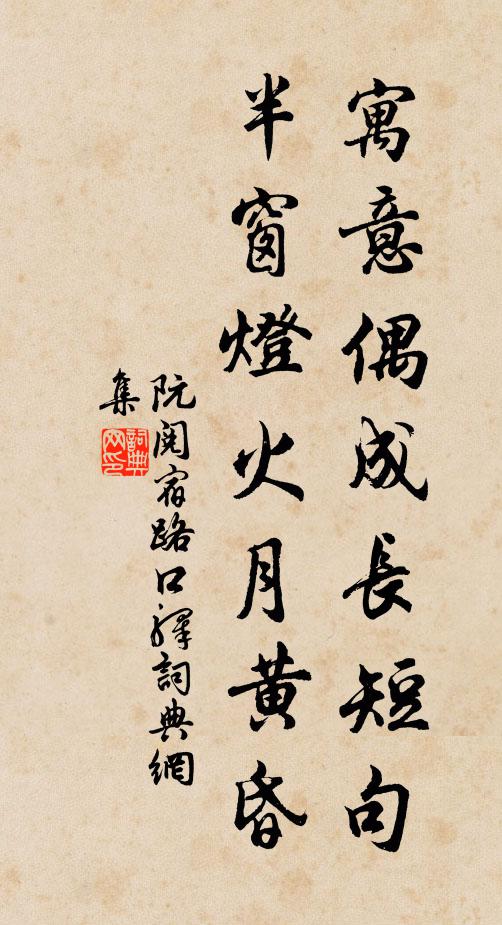 寓意偶成長短句
半窗燈火月黃昏
阮閱宿路口驛詞典網
集
詞典
网印